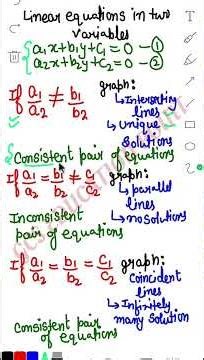 Linear equations in two
variables
a₁x+b₁y+c₁=0 —①
a₂x+b₂y+c₂=0 —②
If a₁/a₂ ≠ b₁/b₂
graph:
↳ Intersecting
lines
↳ Unique
solutions
Consistent pair of equations
If a₁/a₂ = b₁/b₂ ≠ c₁/c₂
graph:
↳ parallel
lines
↳ no solutions
Inconsistent
pair of equations
If a₁/a₂ = b₁/b₂ = c₁/c₂
graph:
Coincident
lines
↳ Infinitely
many solution
Consistent pair
of equations